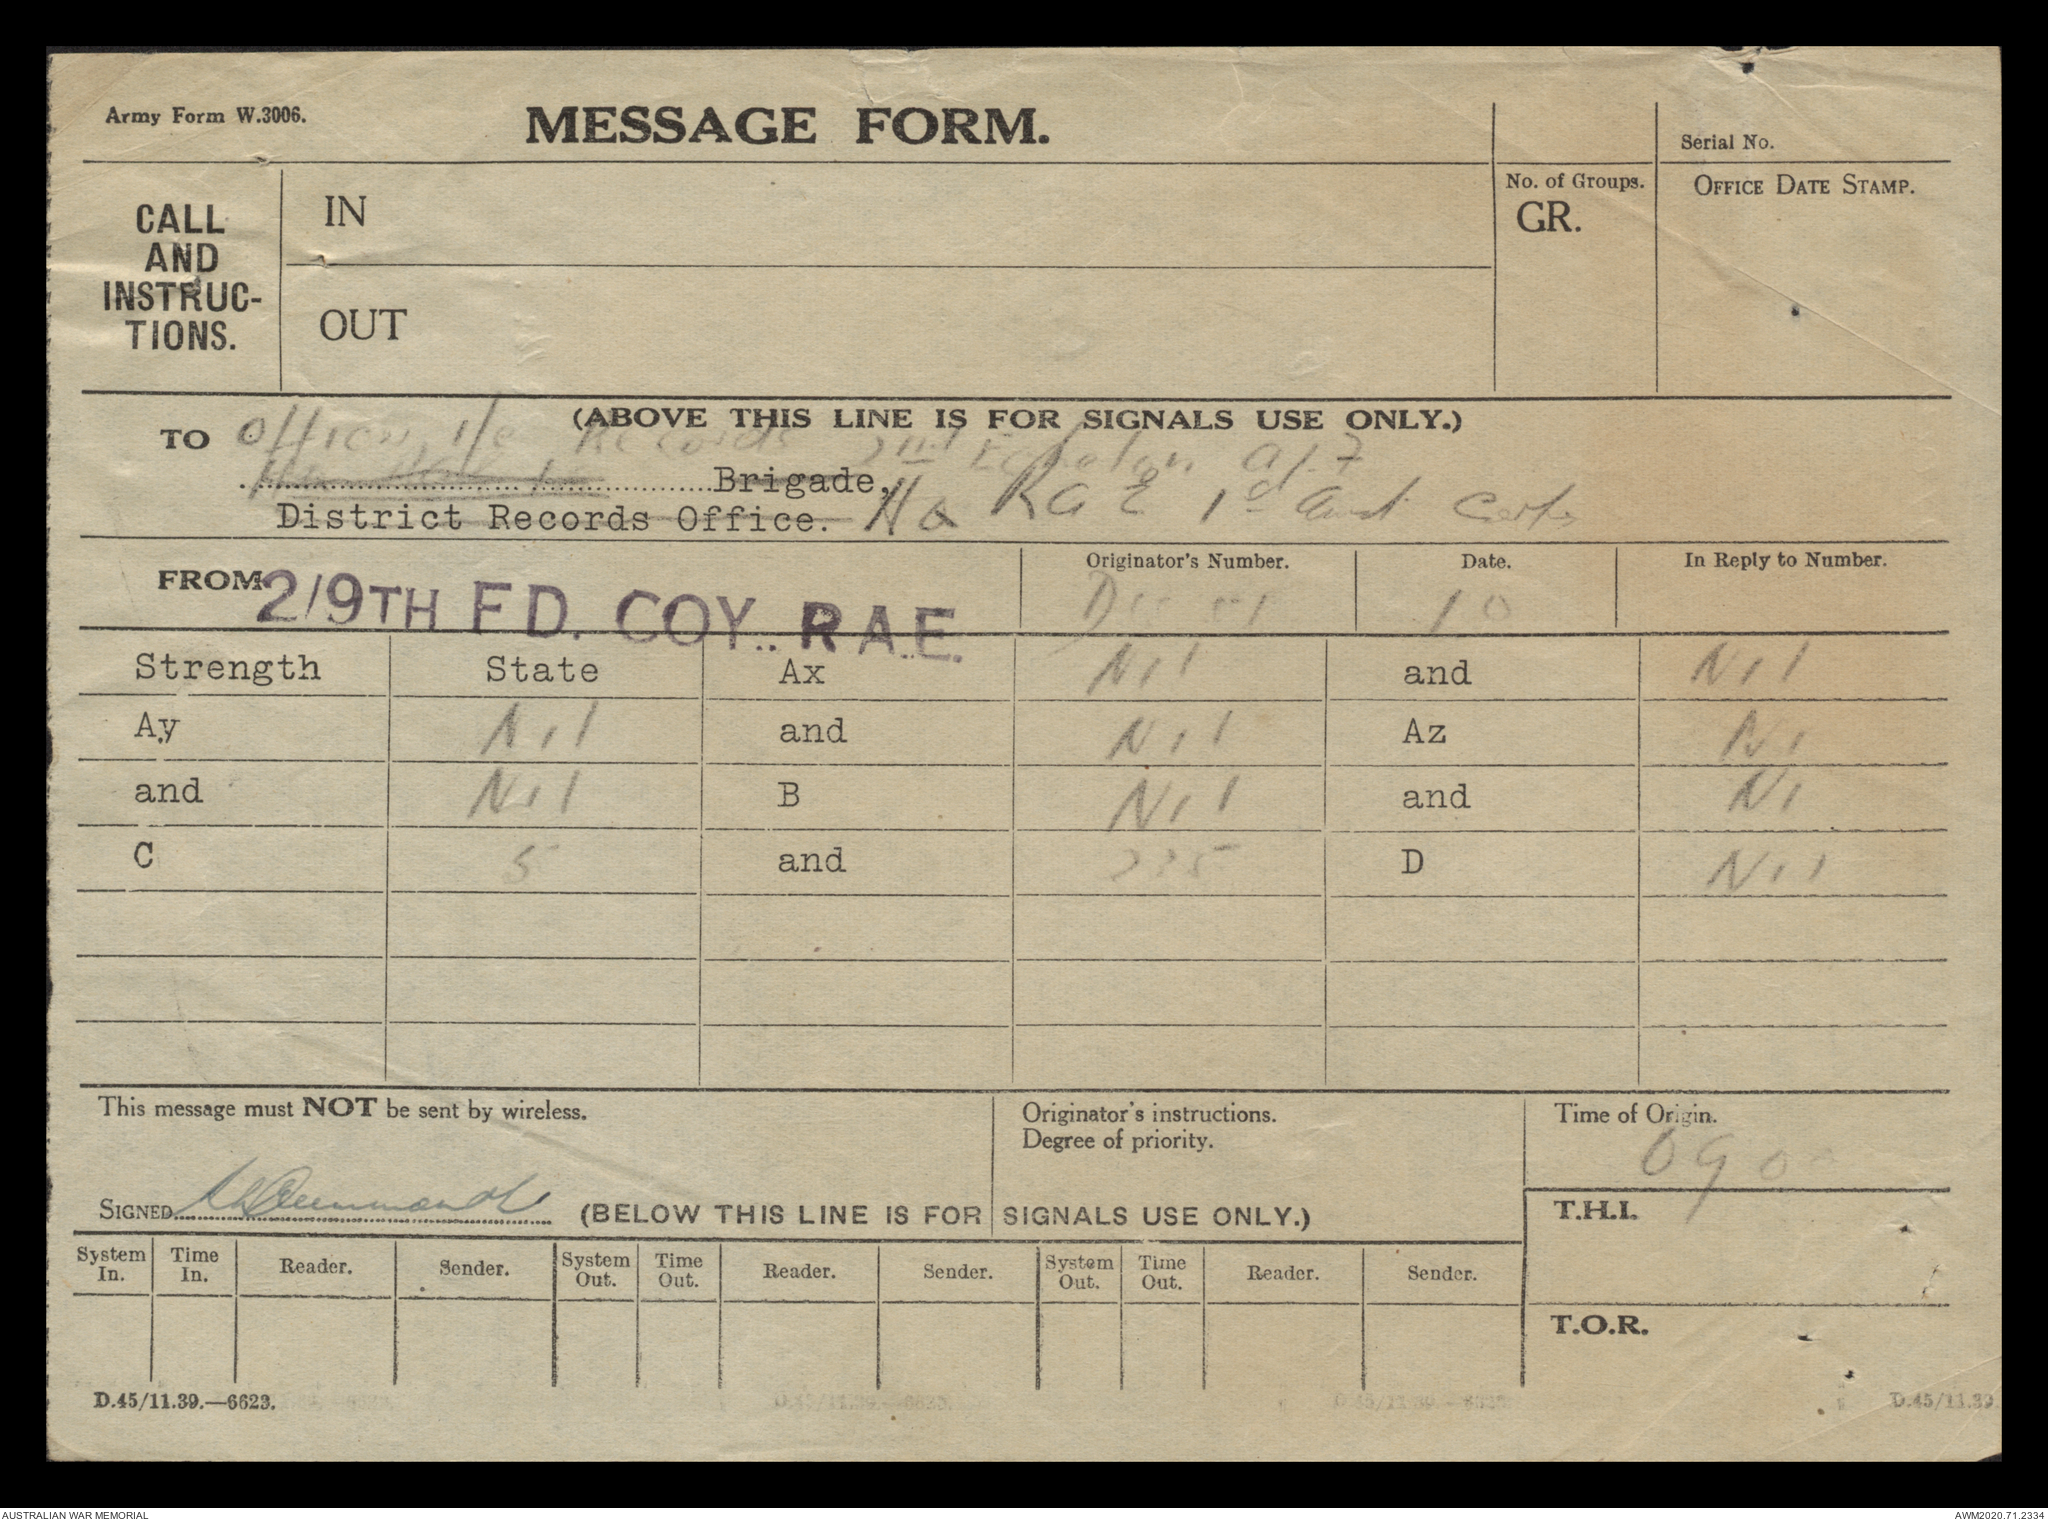 Army Form W.3006.
MESSAGE FORM.
Serial No.
CALL
AND
INSTRUC-
TIONS.
IN
OUT
No. of Groups.
GR.
OFFICE DATE STAMP.
(ABOVE THIS LINE IS FOR SIGNALS USE ONLY.)
TO Officer i/c Records 2nd Echelon A.I.F
Brigade,
District Records Office. HQ RAE 1st Aust Corps
FROM 2/9TH FD. COY. R.A.E.
Originator's Number.
Date.
10
In Reply to Number.
Strength State Ax Nil and Nil
Ay Nil and Nil Az Nil
and Nil B Nil and Nil
C 5 and 235 D Nil
This message must NOT be sent by wireless.
Originator's instructions.
Degree of priority.
Time of Origin.
0900
SIGNED
(BELOW THIS LINE IS FOR SIGNALS USE ONLY.)
T.H.I.
System In. Time In. Reader. Sender. System Out. Time Out. Reader. Sender. System Out. Time Out. Reader. Sender.
T.O.R.
D.45/11.39.—6623.
D.45/11.39.—6623.
D.45/11.39.—6623.
D.45/11.39
AUSTRALIAN WAR MEMORIAL
AWM2020.71.2334